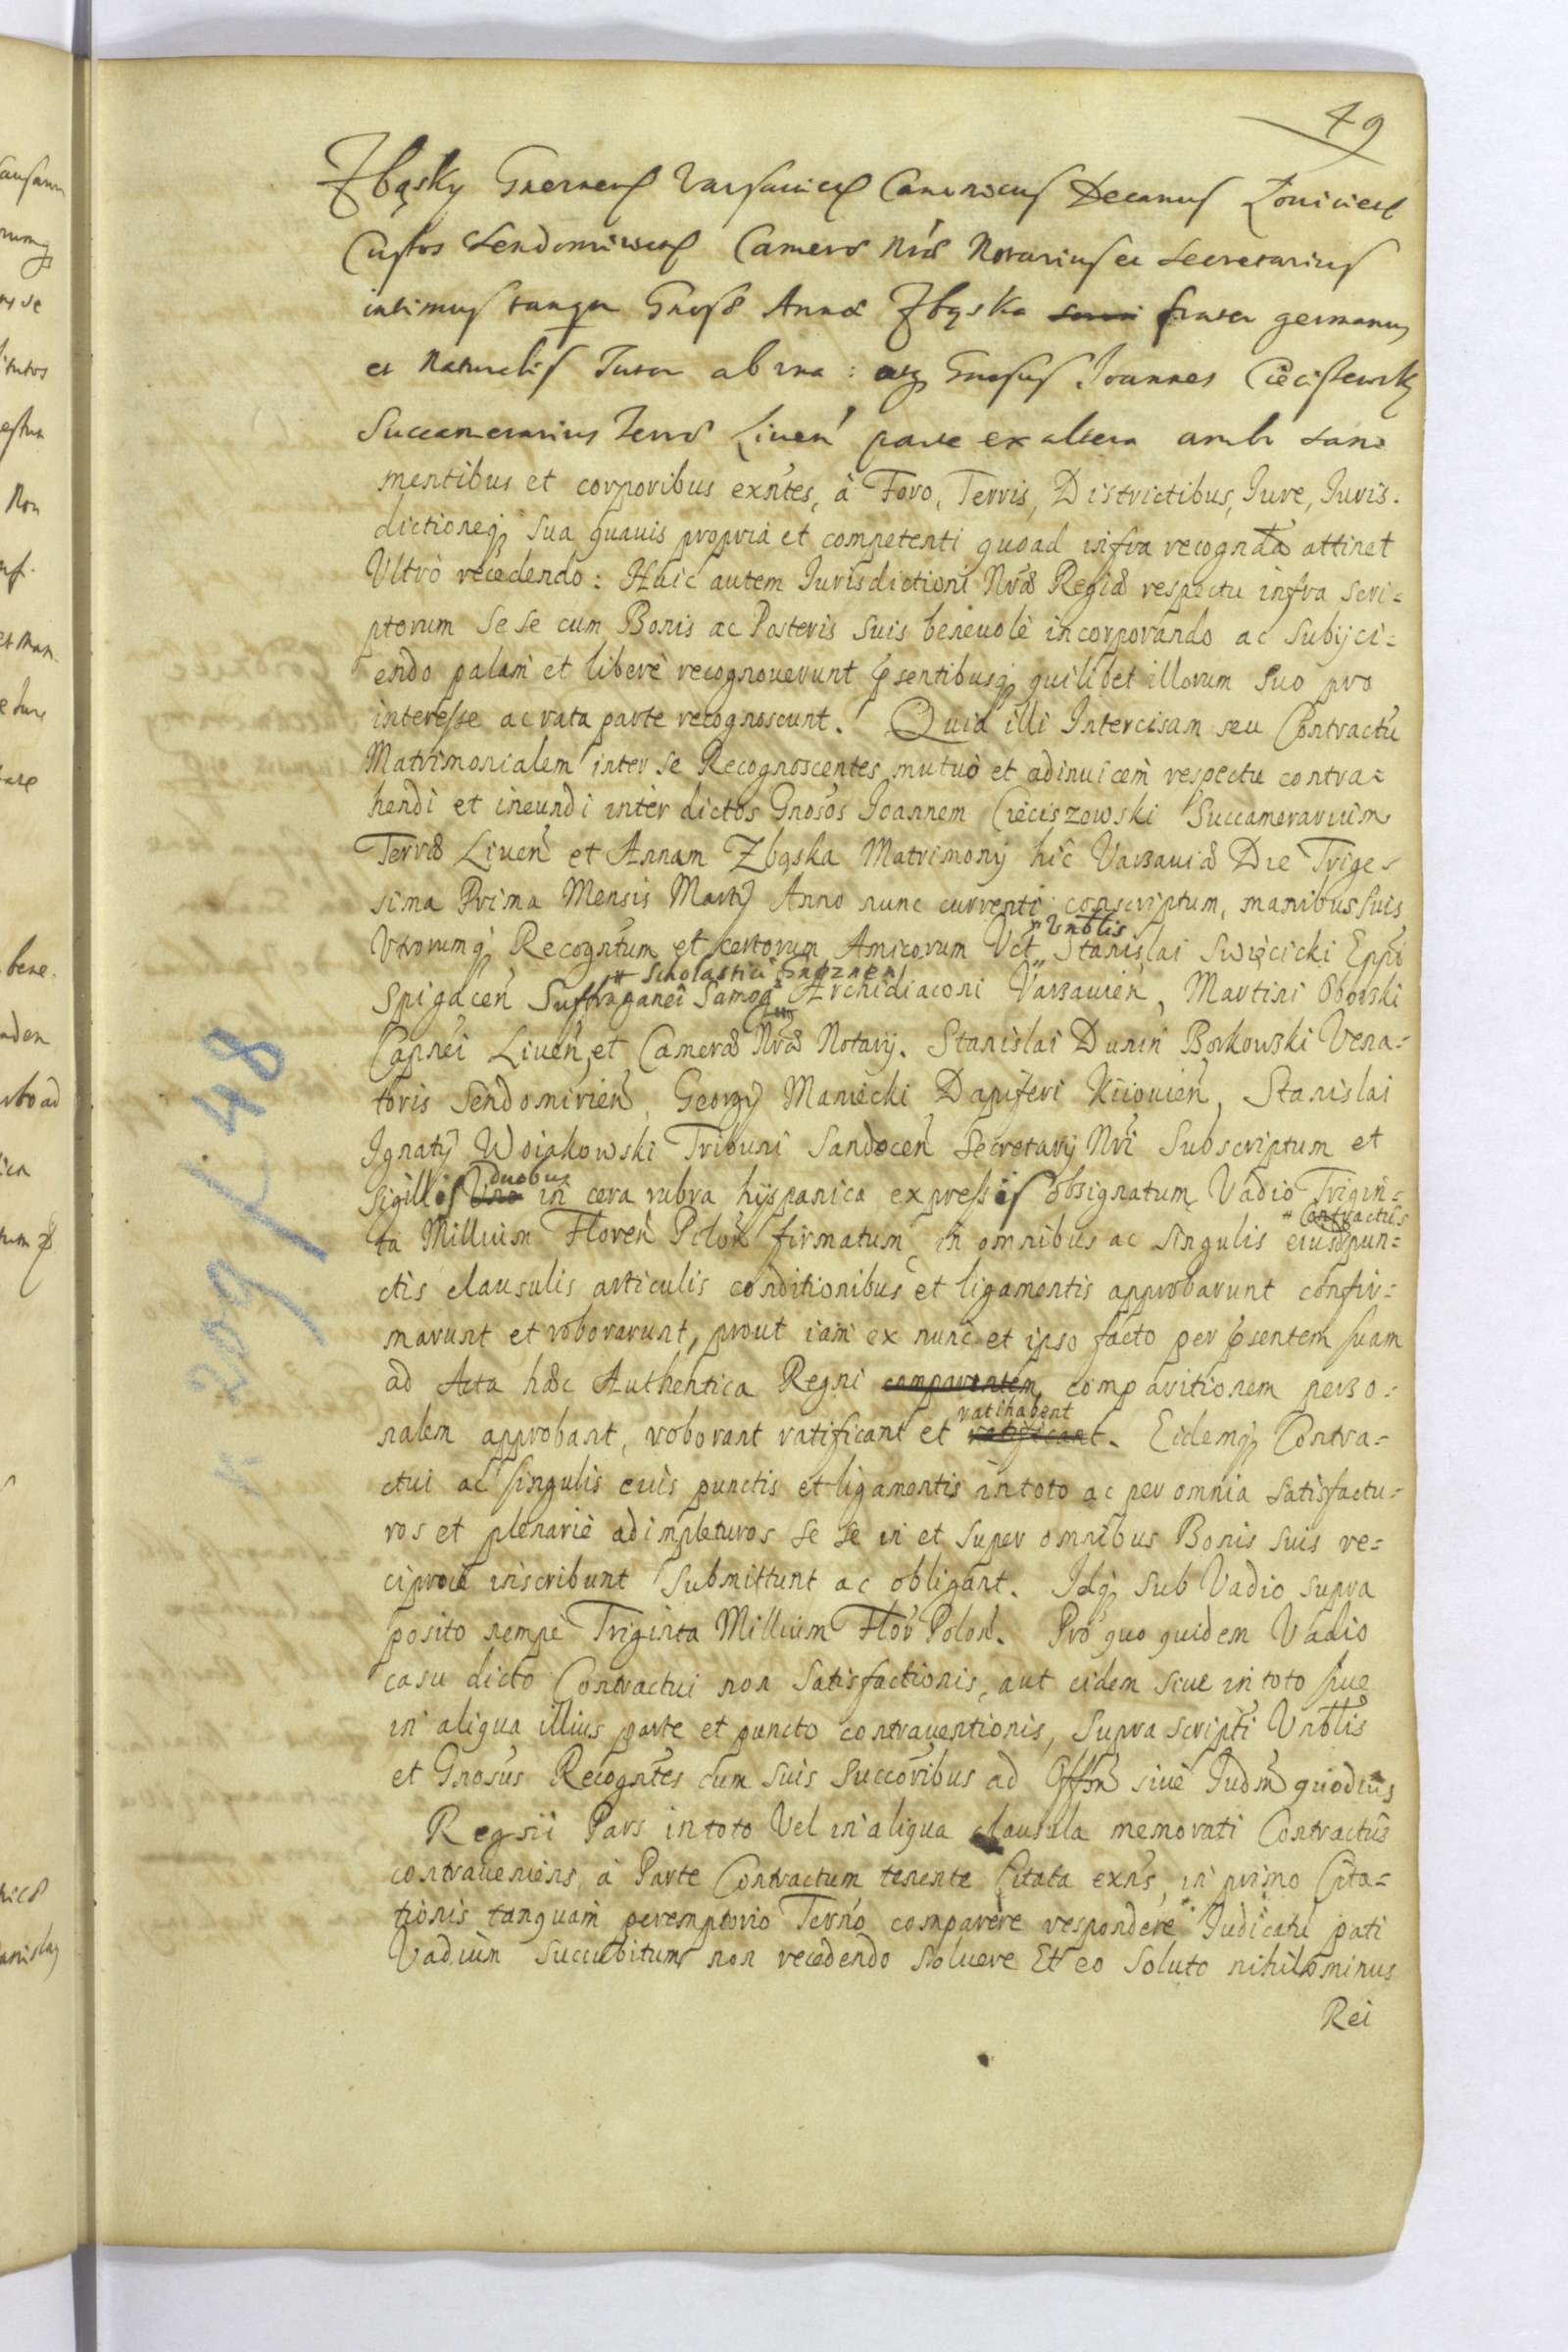 49
Zbąsky Gnesnens Varsaviens Canonicus Decanus Loviciens
Custos Sendomiriens Camerae Nrae Notarius et Secretarius
intimus tanqm Gnosae Annae Zbąska frater germanus
et Naturalis Tutor ab una: atq Gnosus Joannes Cieciszewsky
Succamerarius Terrae Liven parte ex altera ambo sani
mentibus et corporibus exntes, à Foro, Terris, Districtibus, Iure, Iuris-
dictioneq sua quavis propria et competenti quoad infra recognata attinet
Ultrò recedendo: Huic autem Iurisdictioni Nrae Regiae respectu infra scri=
ptorum se se cum Bonis ac Posteris suis benevolè incorporando ac subijci=
endo palam et liberè recognoverunt psentibusq quilibet illorum suo pro
interesse ac rata parte recognoscunt. Quia illi Intercisam seu Contractu
Matrimonialem inter se Recognoscentes mutuò et adinuicem respectu contra=
hendi et ineundi inter dictos Gnosos Ioannem Cieciszowski Succamerarium
Terrae Liven et Annam Zbąska Matrimonij hic Varsaviae Die Trige=
sima Prima Mensis Martij Anno nunc currenti conscriptum, manibus suis
Utrorumq Recogntum et certorum Amicorum Vct Urblis Stanislai Święcicki Eppi
Spigacen Suffraganei Samog Scholastici Gneznen Archidiaconi Varsavien, Martini Oborski
Capnei Liven, et Camerae Nrae Notarij. Stanislai Dunin Borkowski Vena=
toris Sendomirien, Georgij Maniecki Dapiferi Kiiovien, Stanislai
Ignatij Woiakowski Tribuni Sandocen Secretarij Nri Subscriptum et
Sigillis Uno duobus in cera rubra hijspanica expressis obsignatum Vadio Trigin=
ta Millium Floren Polon firmatum in omnibus ac singulis eiusd Contractus pun=
ctis clausulis articulis conditionibus et ligamentis approbarunt confir=
marunt et roborarunt, prout iam ex nunc et ipso facto per psentem suam
ad Acta haec Authentica Regni comparentem comparitionem perso=
nalem approbant, roborant ratificant et ratificant ratihabent. Eidemq Contra=
ctui ac singulis eius punctis et ligamentis in toto ac per omnia satisfactu=
ros et plenariè adimpleturos se se in et super omnibus Bonis suis re=
ciprocè inscribunt submittunt ac obligant. Idq sub Vadio supra
posito nempe Triginta Millium Flor Polon. Pro quo quidem Vadio
casu dicto Contractui non satisfactionis, aut eidem sive in toto sive
in aliqua illius parte et puncto contraventionis, supra scripti Urblis
et Gnosus Recogntes cum suis Succoribus ad Offm sive Iudm quodvis
Regni Pars in toto Vel in aliqua clausula memorati Contractus
contraveniens, à Parte Contractum tenente Citata exns, in primo Cita=
tionis tanquam peremptorio Termo comparere respondere Iudicatu pati
Vadium succubitum non recedendo solvere Et eo soluto nihilominus
Rei
k 209 / L 48